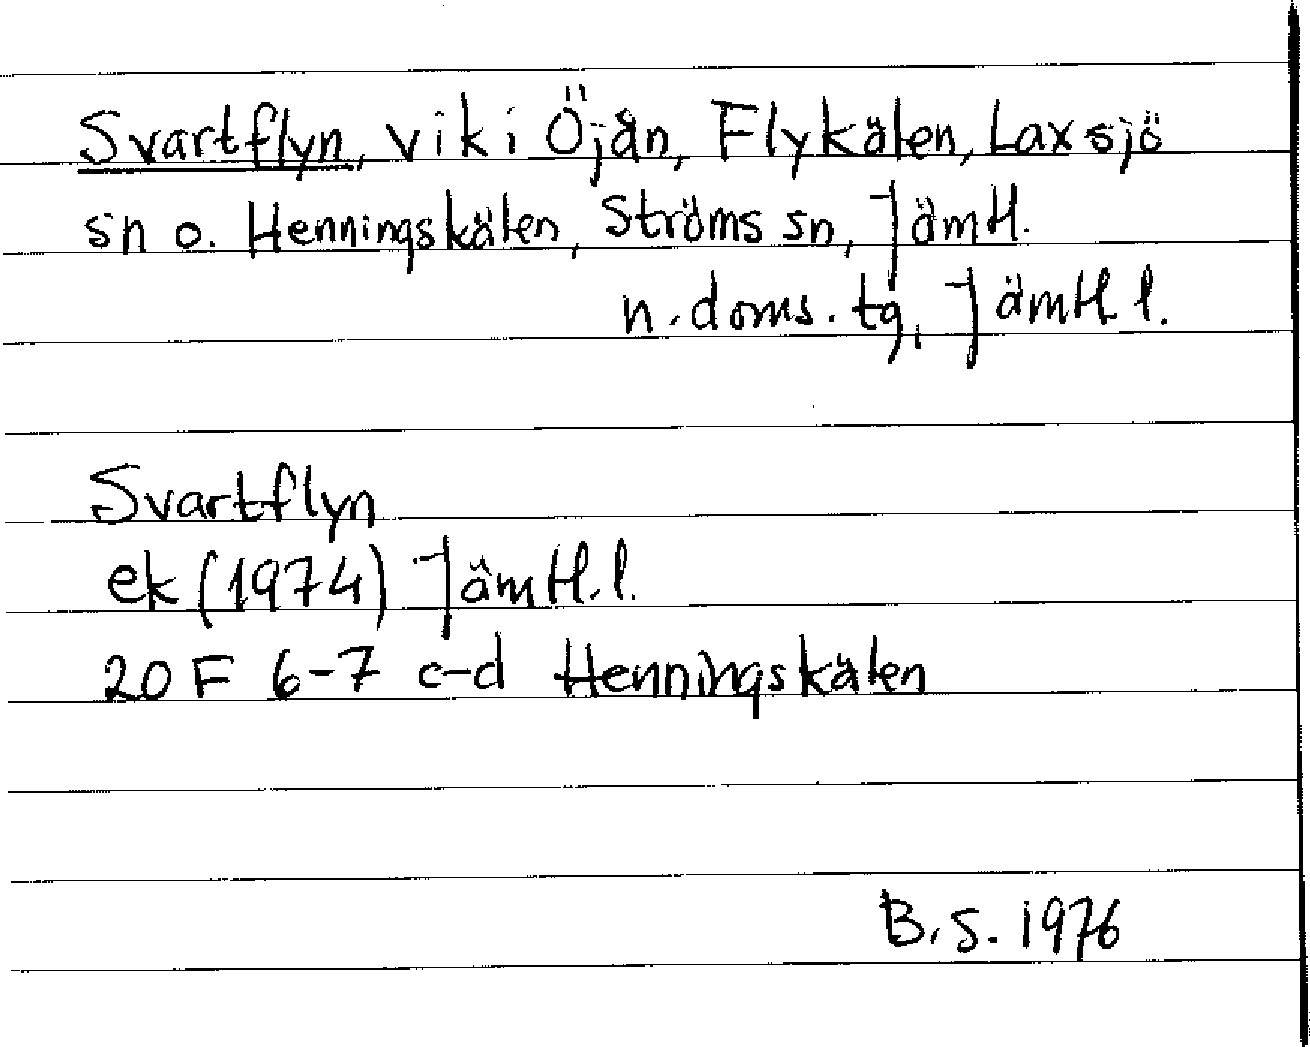 Svartflyn, vik i Öjån, Flykälen, Laxsjö
sn o. Henningskälen, Ströms sn, Jämtl.
n. doms. tg, Jämtl l.
Svartflyn
ek (1974) Jämtl. l.
20 F 6-7 c-d Henningskälen
B.S. 1976